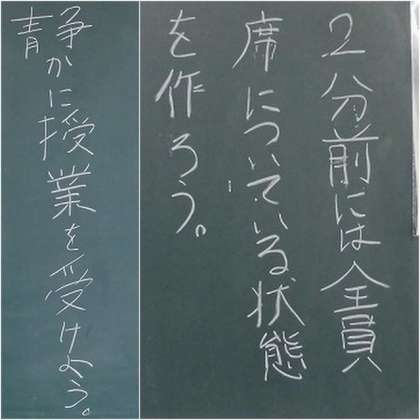 静かに授業を受けよう。
2分前には全員
席についている状態
を作ろう。